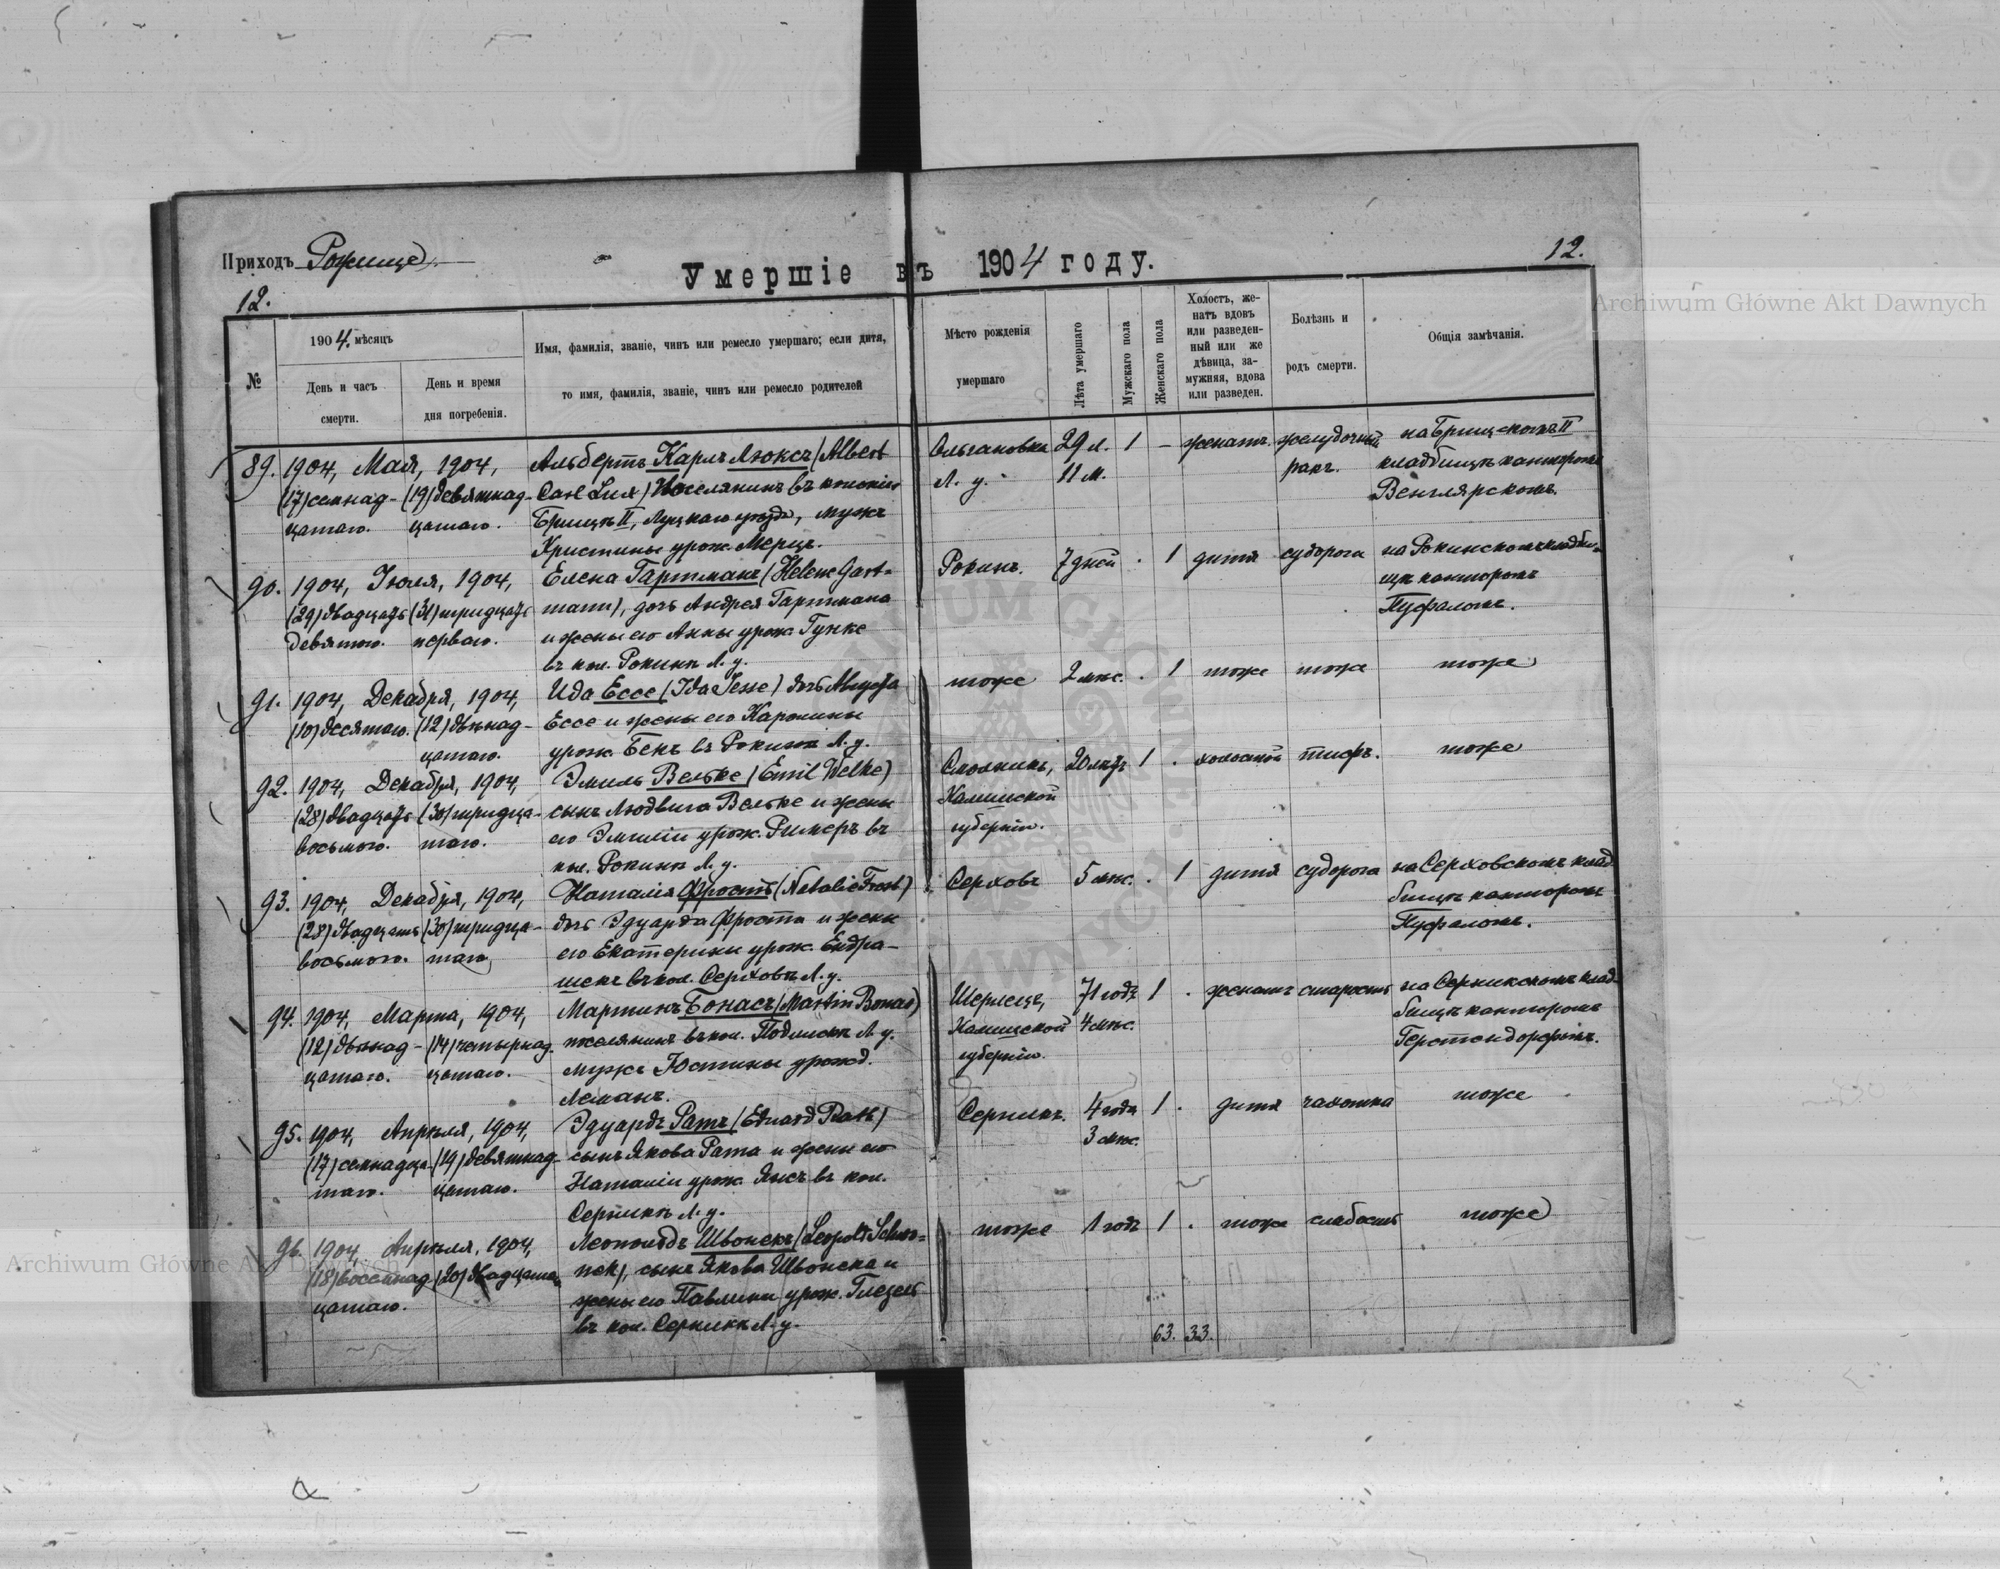 Приходъ Рожище.
Умершіе въ 1904 году.
12.
12.
№
1904. мѣсяцъ
День и часъ смерти.
День и время дня погребенія.
Имя, фамилія, званіе, чинъ или ремесло умершаго; если дитя,
то имя, фамилія, званіе, чинъ или ремесло родителей
Мѣсто рожденія умершаго
Лѣта умершаго
Мужскаго пола
Женскаго пола
Холостъ, же-
натъ вдовъ
или разведен-
ный или же
дѣвица, за-
мужняя, вдова
или разведен.
Болѣзнь и
родъ смерти.
Общія замѣчанія.
89. 1904, Мая, 1904, Альбертъ Карлъ Люксъ (Albert Ольгановка 29 л. 1 – женатъ желудочный на Брищскомъ II
(17) семнад- (19) девятнад- Carl Lux) Поселянинъ въ колоніи Л. у. 11 м. ракъ. кладбищѣ канторомъ
цатаго. цатаго. Брищѣ II, Луцкаго уѣзда, мужъ Венглярскомъ.
Кристины урож. Мерцъ.
90. 1904, Іюля, 1904, Елена Гартманъ (Helene Gart- Рокинъ. 7 дней . 1 дитя судорога на Рокинскомъ кладби-
(29) двадцать (31) тридцать mann), дочь Андрея Гартмана щѣ канторомъ
девятого. перваго. и жены его Анны урож. Гунке Пуфаломъ.
въ кол. Рокинѣ Л. у.
91. 1904, Декабря, 1904, Ида Ессе (Ida Jesse) дочь Августа тоже 2 мѣс. . 1 тоже тоже тоже
(10) десятаго. (12) двѣнад- Ессе и жены его Каролины
цатаго. урож. Бенъ въ Рокинѣ Л. у.
92. 1904, Декабря, 1904, Эмиль Вельке (Emil Welke) Смолникъ, 20 лѣтъ 1 . холостой тифъ. тоже
(28) двадцать (30) тридца- сынъ Людвига Вельке и жены Калишской
восьмого. таго. его Эмиліи урож. Римеръ въ губерніи.
кол. Рокинѣ Л. у.
93. 1904, Декабря, 1904, Наталія Фростъ (Natalie Frost) Серховъ 5 мѣс. . 1 дитя судорога на Серховскомъ клад-
(28) двадцать (30) тридца- дочь Эдуарда Фроста и жены бищѣ канторомъ
восьмого. таго его Екатерины урож. Ендра- Пуфаломъ.
шекъ въ кол. Серховѣ Л. у.
94. 1904, Марта, 1904, Мартинъ Бонасъ (Martin Bonas) 71 годъ 1 . женатъ старость на Серникскомъ клад-
(12) двѣнад- (14) четырнад. поселянинъ въ кол. Подлискѣ Л. у. Калишской 4 мѣс. бищѣ канторомъ
цатаго. цатаго. мужъ Юстины урожд. губерніи. Герстендорфомъ.
Леманъ.
95. 1904, Апрѣля, 1904, Эдуардъ Ратъ (Eduard Rath) Серникъ. 4 года 1 . дитя чахотка тоже
(17) семнадца- (19) девятнад- сынъ Якова Рата и жены его 3 мѣс.
таго. цатаго. Наталіи урож. Янсъ въ кол.
Серникѣ Л. у.
96. 1904, Апрѣля, 1904, Леопольдъ Швонекъ (Leopold Schwo- тоже 1 годъ 1 . тоже слабость тоже
(18) восемнад (20) двадцата- nek), сынъ Якова Швонека и
цатаго. жены его Павлины урож. Глезель
въ кол. Серникѣ Л. у.
63. 33.
Archiwum Główne Akt Dawnych
Archiwum Główne Akt Dawnych
Archiwum Główne Akt Dawnych